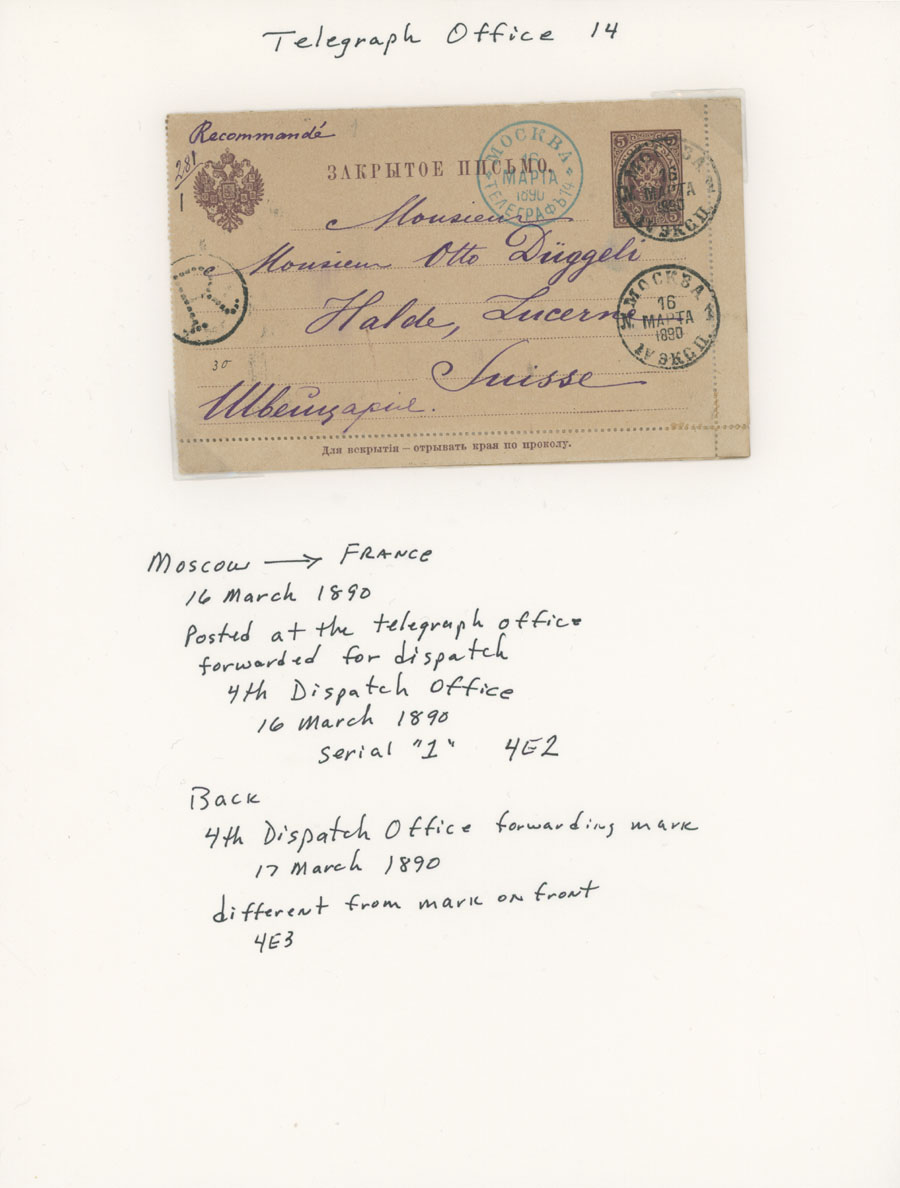 Telegraph Office 14
Recommandé
281
1
ЗАКРЫТОЕ ПИСЬМО.
МОСКВА
16
МАРТА
1890
ТЕЛЕГРАФЪ 14
5 5
5 5
МОСКВА
16
МАРТА
1890
IV ЭКСП.
Monsieur
Monsieur Otto Düggeli
Halde, Lucerne
Suisse
Швейцарія.
R
30
МОСКВА
16
МАРТА
1890
IV ЭКСП.
Для вскрытія — отрывать края по проколу.
Moscow → FRANCE
16 March 1890
Posted at the telegraph office
forwarded for dispatch
4th Dispatch Office
16 March 1890
serial "1" 4E2
Back
4th Dispatch Office forwarding mark
17 March 1890
different from mark on front
4E3